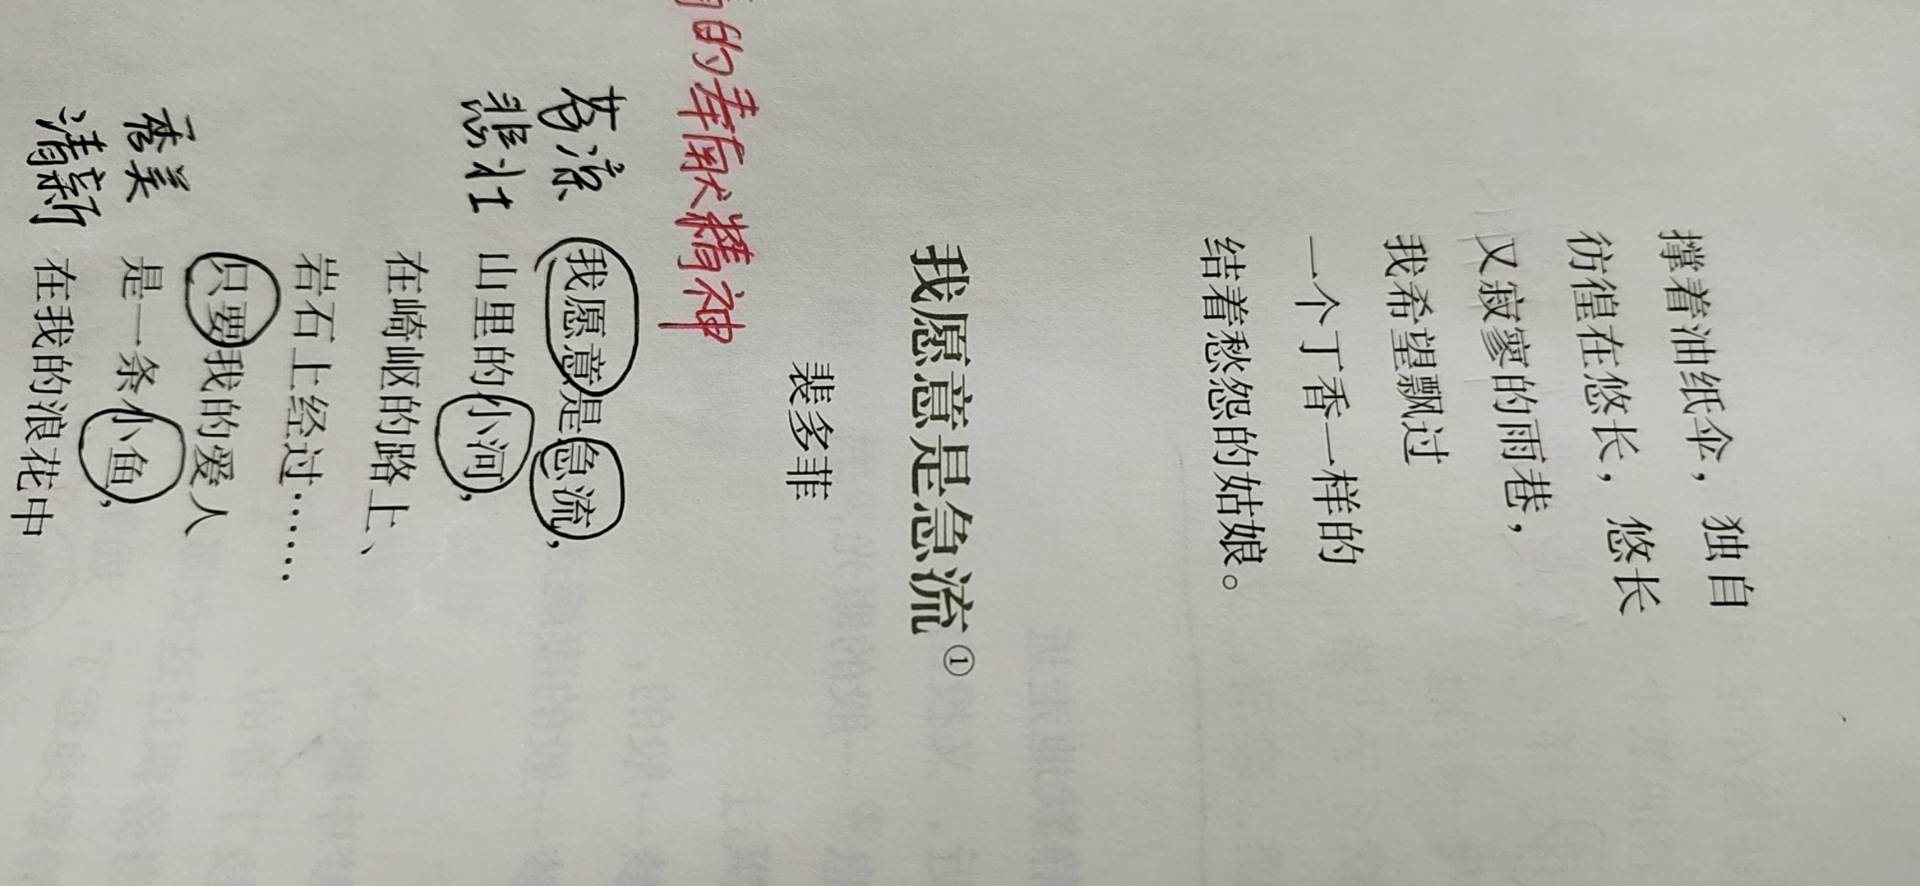 撑着油纸伞，独自
彷徨在悠长，悠长
又寂寥的雨巷，
我希望飘过
一个丁香一样的
结着愁怨的姑娘。
我愿意是急流①
裴多菲
的奉献精神
苍凉
悲壮
我愿意是急流，
山里的小河，
在崎岖的路上、
岩石上经过……
只要我的爱人
是一条小鱼，
在我的浪花中
秀美
清新